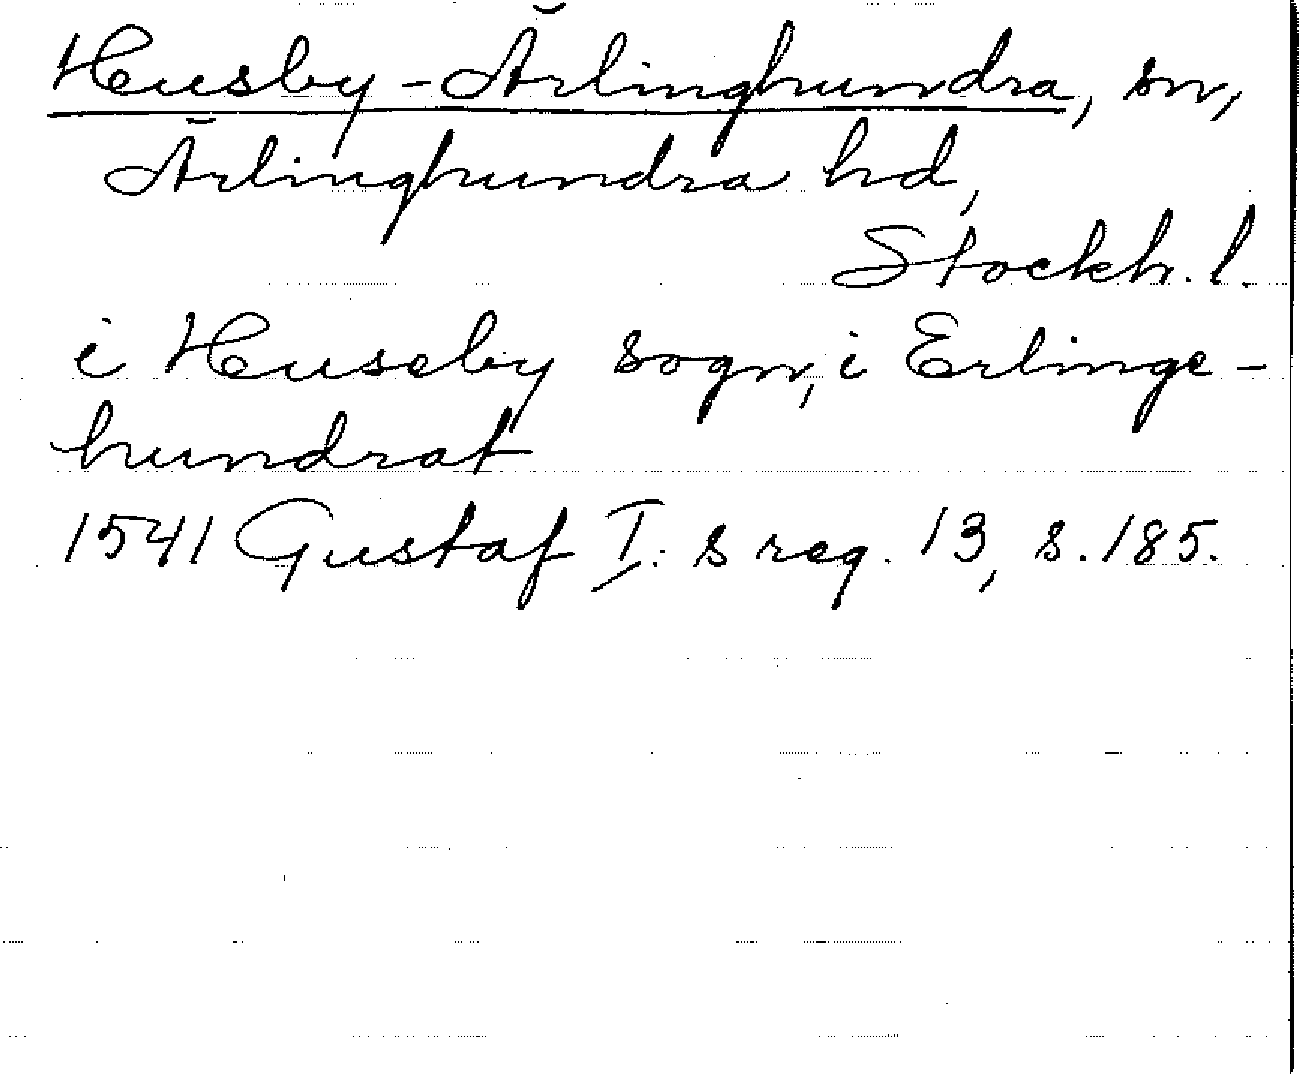 Husby-Ärlinghundra, sn,
Ärlinghundra hd,
Stockh. l.
i Huseby sogn, i Erlinge-
hundrat
1541 Gustaf I:s reg. 13, s. 185.